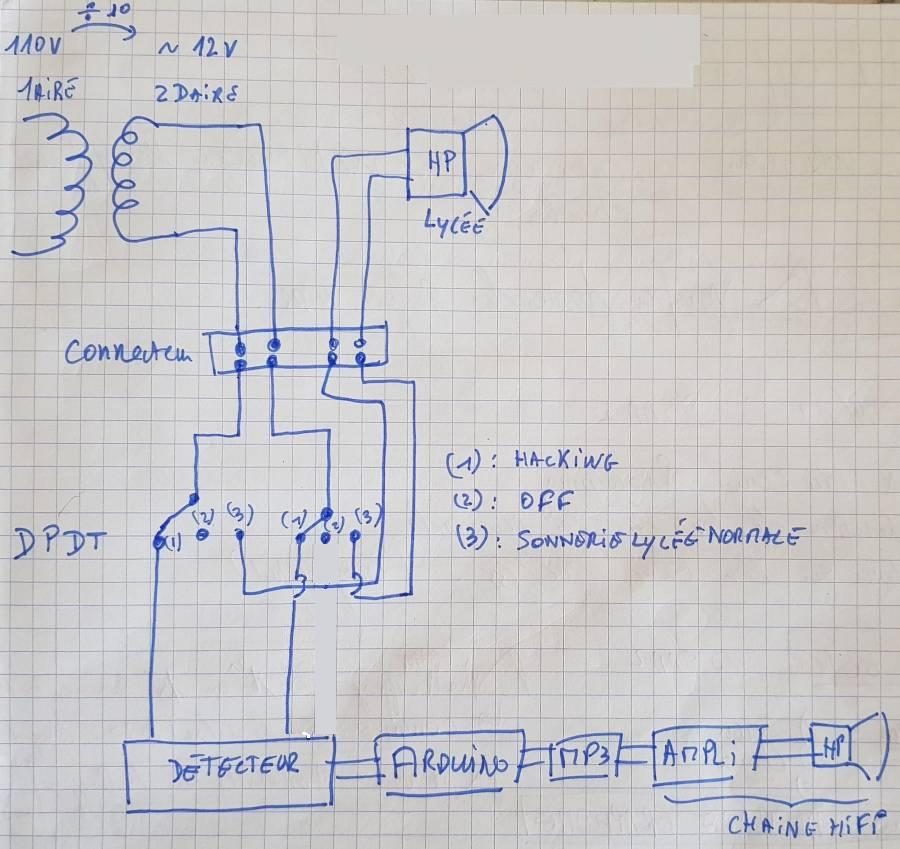 ÷ 10
110V
~ 12V
1AIRE
2DAIRE
HP
LYCÉE
Connecteur
(1) : HACKING
(2) : OFF
(3) : SONNERIE LYCÉE NORMALE
DPDT
(1)
(2)
(3)
(1)
(2)
(3)
DÉTECTEUR
ARDUINO
MP3
AMPLi
HP
CHAINE HiFi